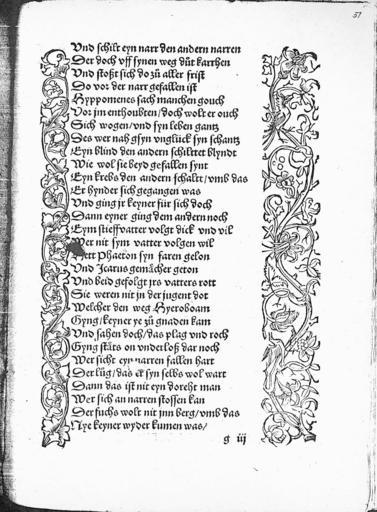 57
Vnd schilt eyn narr den andern narren
Der doch vff synen weg důt karrhen
Vnd stoßt sich do zů aller frist
Do vor der narr gefallen ist
Hyppomenes sach manchen gouch
Vor jm enthoubten / doch wolt er ouch
Sich wogen / vnd syn leben gantz
Des wer noh gsyn vnglück syn schantz
Eyn blind den andern schiltet blyndt
Wie wol sie beyd gefallen synt
Eyn krebs den andern schalt / vmb das
Er hyndet sich gegangen was
Vnd ging jr keyner für sich doch
Dann eyner ging dem andern noch
Eym stieffvatter volgt dick vnd vil
Wer nit sym vatter volgen wil
Hett Phaeton syn faren gelon
Vnd Icarus gemächer geton
Vnd beid gefolgt jrs vatters rott
Sie weren nit jn der jugent dot
Welcher den weg Hyeroboam
Gyng / keyner ye zů gnaden kam
Vnd sahen doch / das plag vnd roch
Gyng stäts on vnderloß dar noch
Wer sicht eyn narren fallen hart
Der lůg / das er syn selbs wol wart
Dann das ist nit eyn doreht man
Wer sich an narren stossen kan
Der fuchs wolt nit jnn berg / vmb das
Nye keyner wyder kumen was /
g iij